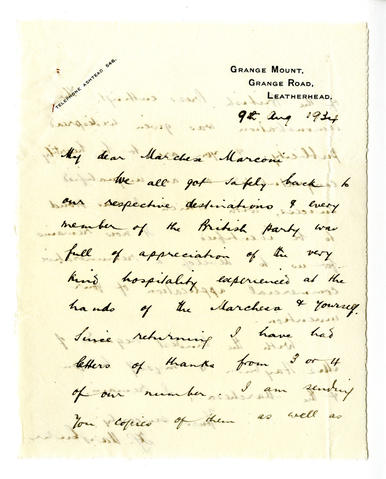 TELEPHONE ASHTEAD 546.
GRANGE MOUNT,
GRANGE ROAD,
LEATHERHEAD,
9th Aug 1934
My dear Marchese Marconi
We all got safely back to
our respective destinations & every
member of the British party was
full of appreciation of the very
kind hospitality experienced at the
hands of the Marchesa & yourself.
Since returning I have had
letters of thanks from 3 or 4
of our number. I am sending
you copies of them as well as